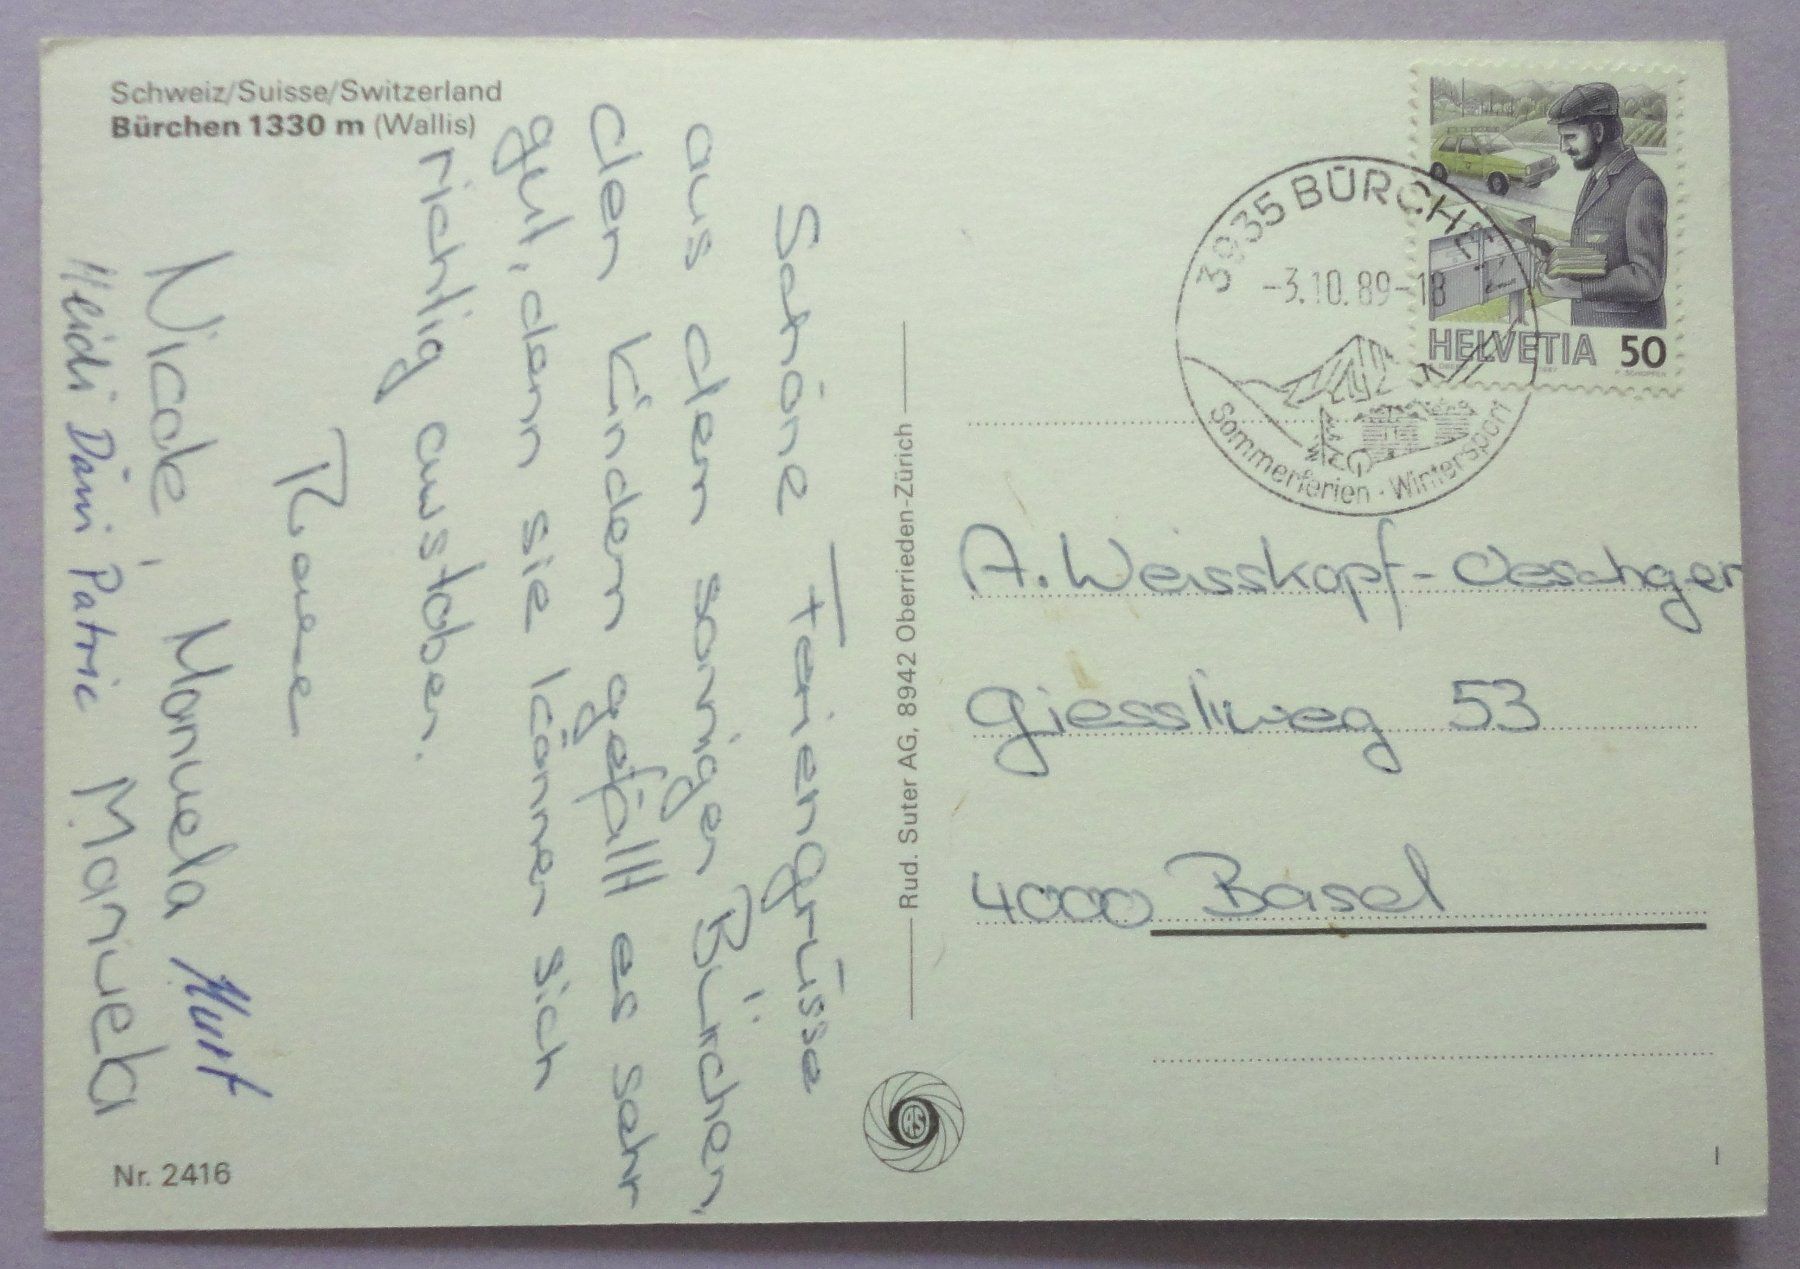 Schweiz/Suisse/Switzerland
Bürchen 1330 m (Wallis)
Schöne Feriengrüsse
aus dem sonnigen Bürchen,
den Kindern gefällt es sehr
gut, denn sie können sich
richtig austoben.
Nicole, Manuela Kurt
Heidi Dani Patric Manuela
Nr. 2416
Rud. Suter AG, 8942 Oberrieden-Zürich
RS
3935 BÜRCHEN
-3.10.89-18
Sommerferien · Wintersport
HELVETIA 50
A. Weisskopf-Oeschger
Giessliweg 53
4000 Basel